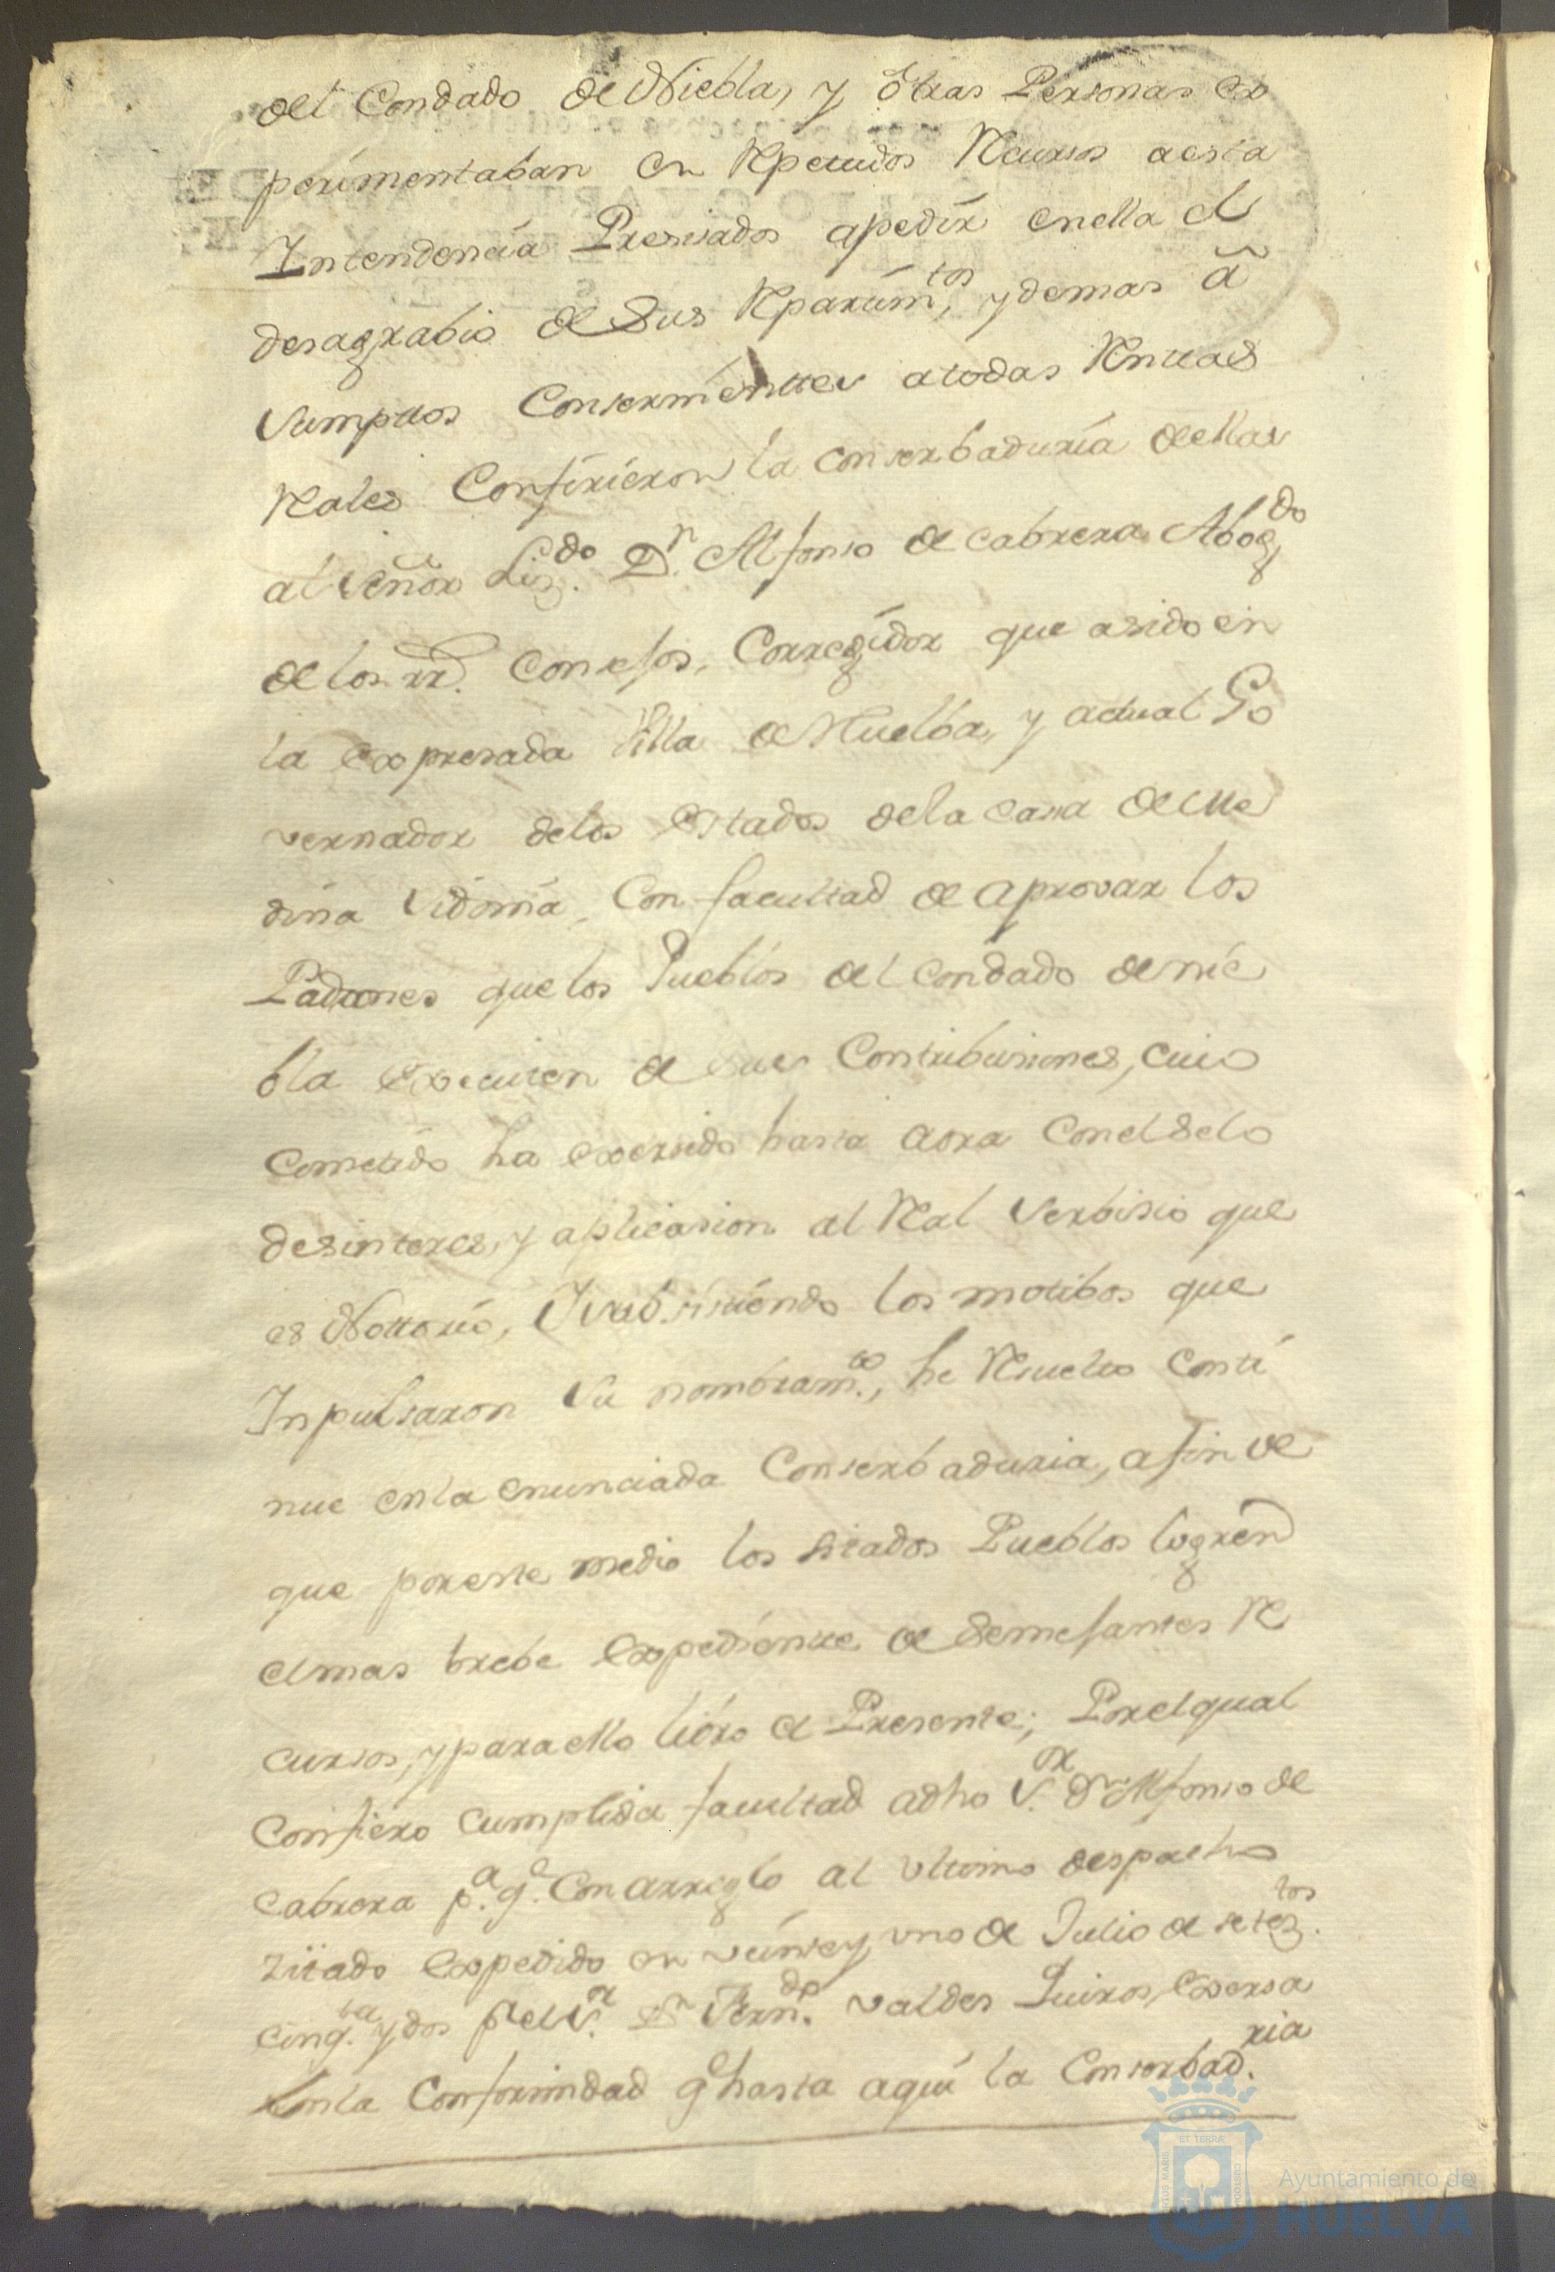 del Condado de Niebla, y otras Personas ex
perimentaban en Repetidos Recursos aesta
Intendencia Presisados apedir enella el
desagrabio de sus Repartim.tos, y demas a
sumpttos Conserniénttes atodas Rnttas
Rales Confirieron la conserbaduría dellas
al Señor Liz.do D.n Alfonso de cabrera Abog.do
de los rr.s Consejos, Corregidor que asido en
la expresada Villa de Huelba, y actual Go
vernador delos Estados dela casa de Me
dina Sidonia, Con facultad de aprovar los
Padrones que los Pueblos del condado de nie
bla executen de sus Contribusiones, cuio
Cometido ha exersido hasta aora conel Selo
desinteres, y aplicasion al Real Serbisio que
es Nottorio, Y subsistiendo los motibos que
Inpulsaron su nombram.to, he Resuelto conti
nue enla enunciada Conserbaduria, afin de
que poreste medio los sitados Pueblos logren
elmas brebe expedientte de Semejantes Re
cursos, y para ello libro el Presente; Porelqual
confiero cumplida facultad adho S.or D.n Alfonso de
cabrera p.a q.e Con arreglo al ultimo despacho
zitado expedido en veinte y uno de Julio de setez.tos
cinq.ta y dos p.r el S.or D.n Fern.do valdes Quiros, Exersa
enla Conformidad q.e hasta aqui la Conserbad.ria
ET TERRÆ
Ayuntamiento de
HUELVA